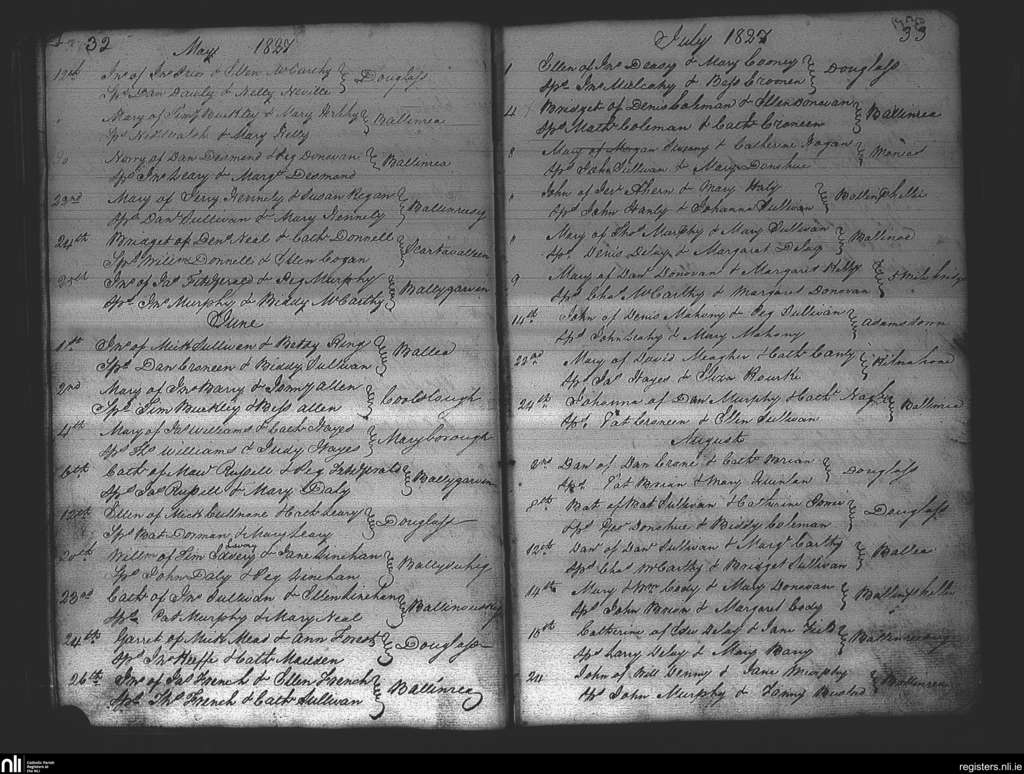 32
May 1827
12th Jno of Jno Dries & Ellen McCarthy } Douglass
Sps Dan Dawly & Nelly Neville
" Mary of Timy Buckley & Mary Hrley } Ballinrea
Sps Ned Walsh & Mary Kelly
20 Norry of Dan Desmond & Peg Donovan } Ballinrea
Sps Jno Leary & Margt Desmond
23rd Mary of Jerry Kennely & Susan Regan } Ballinrusig
Sps Danl Sullivan & Mary Kennely
24th Bridget of Denis Neal & Cath Donnell } Scartnavalleen
Sps Willm Donnell & Ellen Cogan
23rd Jno of Jas Fitzgerald & Peg Murphy } Ballygarvan
Sps Jno Murphy & Biddy McCarthy
June
1st Jno of Mick Sullivan & Betsy Ring } Ballea
Sps Dan Croneen & Biddy Sullivan
2nd Mary of Jno Barry & Jonny Allen } Cooldlough
Sps Tim Buckley & Bess Allen
4th Mary of Jas Williams & Cath Hayes } Maryborough
Sps Ths Williams & Judy Hayes
6th Cath of Maw Russell & Peg Fitzgerald } Ballygarvan
Sps Jas Russell & Mary Daly
Ellen of Mick Cullnane & Cath Leary } Douglass
Sps Bat Dorman & Mary Leary
20th Willm of Tim & Jane Linehan } Ballyduhig
Sps John Daly & Peg Linehan
23rd Cath of Jno Sullivan & Ellen Linehan } Ballinousky
Sps Pat Murphy & Mary Neal
24th Garret of Mick Meas & Ann Forest } Douglass
Sps Jno Keeffe & Cath Madden
26th Jno of Jas French & Ellen French } Ballinrea
Sps Ths French & Cath Sullivan
33
July 1827
1 Ellen of Jno Deasy & Mary Cooney } Douglass
Sps Jno Mulcahy & Bess Croneen
4 Bridget of Denis Coleman & Ellen Donovan } Ballinrea
Sps Math Coleman & Cath Croneen
8 Mary of Morgan & Catherine Hogan } Monees
Sps John Sullivan & Mary Donohue
" John of Jer Ahern & Mary Haly
Sps John Hanly & Johanna Sullivan
" Mary of Ths Murphy & Mary Sullivan
Sps Denis Delay & Margaret Delay
9 Mary of Danl Donovan & Margaret Kelly
Sps Chas McCarthy & Margaret Donovan
14th John of Denis Mahony & Peg Sullivan } Adamsdown
Sps John Leahy & Mary Mahony
22nd Mary of David Meagher & Cath Canty } Kilnahone
Sps Jas Hayes & Eliza Rourke
24th Johanna of Dan Murphy & Cath } Ballinrea
Sps Pat Croneen & Ellen Sullivan
August
3rd Dan of Dan Crone & Cath Brian } Douglass
Sps Pat Brian & Mary Quinlan
8th Bat of Bat Sullivan & Catherine } Douglass
Sps Donohue & Biddy Coleman
12th Danl of Danl Sullivan & Margt Carthy } Ballea
Sps Chas McCarthy & Bridget Sullivan
14th Mary of Wm Cody & Mary Donovan
Sps John Bown & Margaret Cody
Catherine of Edw Delay & Jane
Sps Larry Delay & Mary Barry
24 John of Bill Denny & Jane Murphy } Ballinrea
Sps John Murphy & Fanny
nli
Catholic Parish
Registers at
the NLI
registers.nli.ie